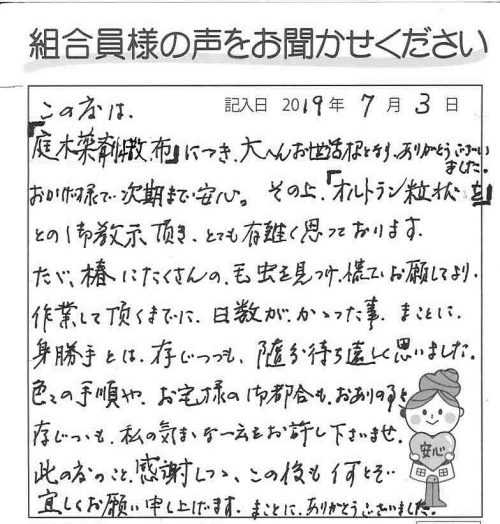 組合員様の声をお聞かせください
記入日 2019年 7月 3日
この度は、
『庭木薬剤散布』につき、大へんお世話様となり、ありがとうござい
ました。
おかげ様で次期まで安心。その上、『オルトラン粒状を』
との御教示頂き、とても有難く思っております。
ただ、椿にたくさんの、毛虫を見つけ、慌てお願してより、
作業して頂くまでに、日数が、かゝった事、まことに、
身勝手とは、存じつつも、随分待ち遠しく思いました。
色々の手順や、お宅様の御都合も、おありの事と
存じつゝも、私の気まゝな一言をお許し下さいませ。
此の度のこと、感謝しつゝ、この後も何とぞ
宜しくお願い申し上げます。まことに、ありがとうございました。
安心